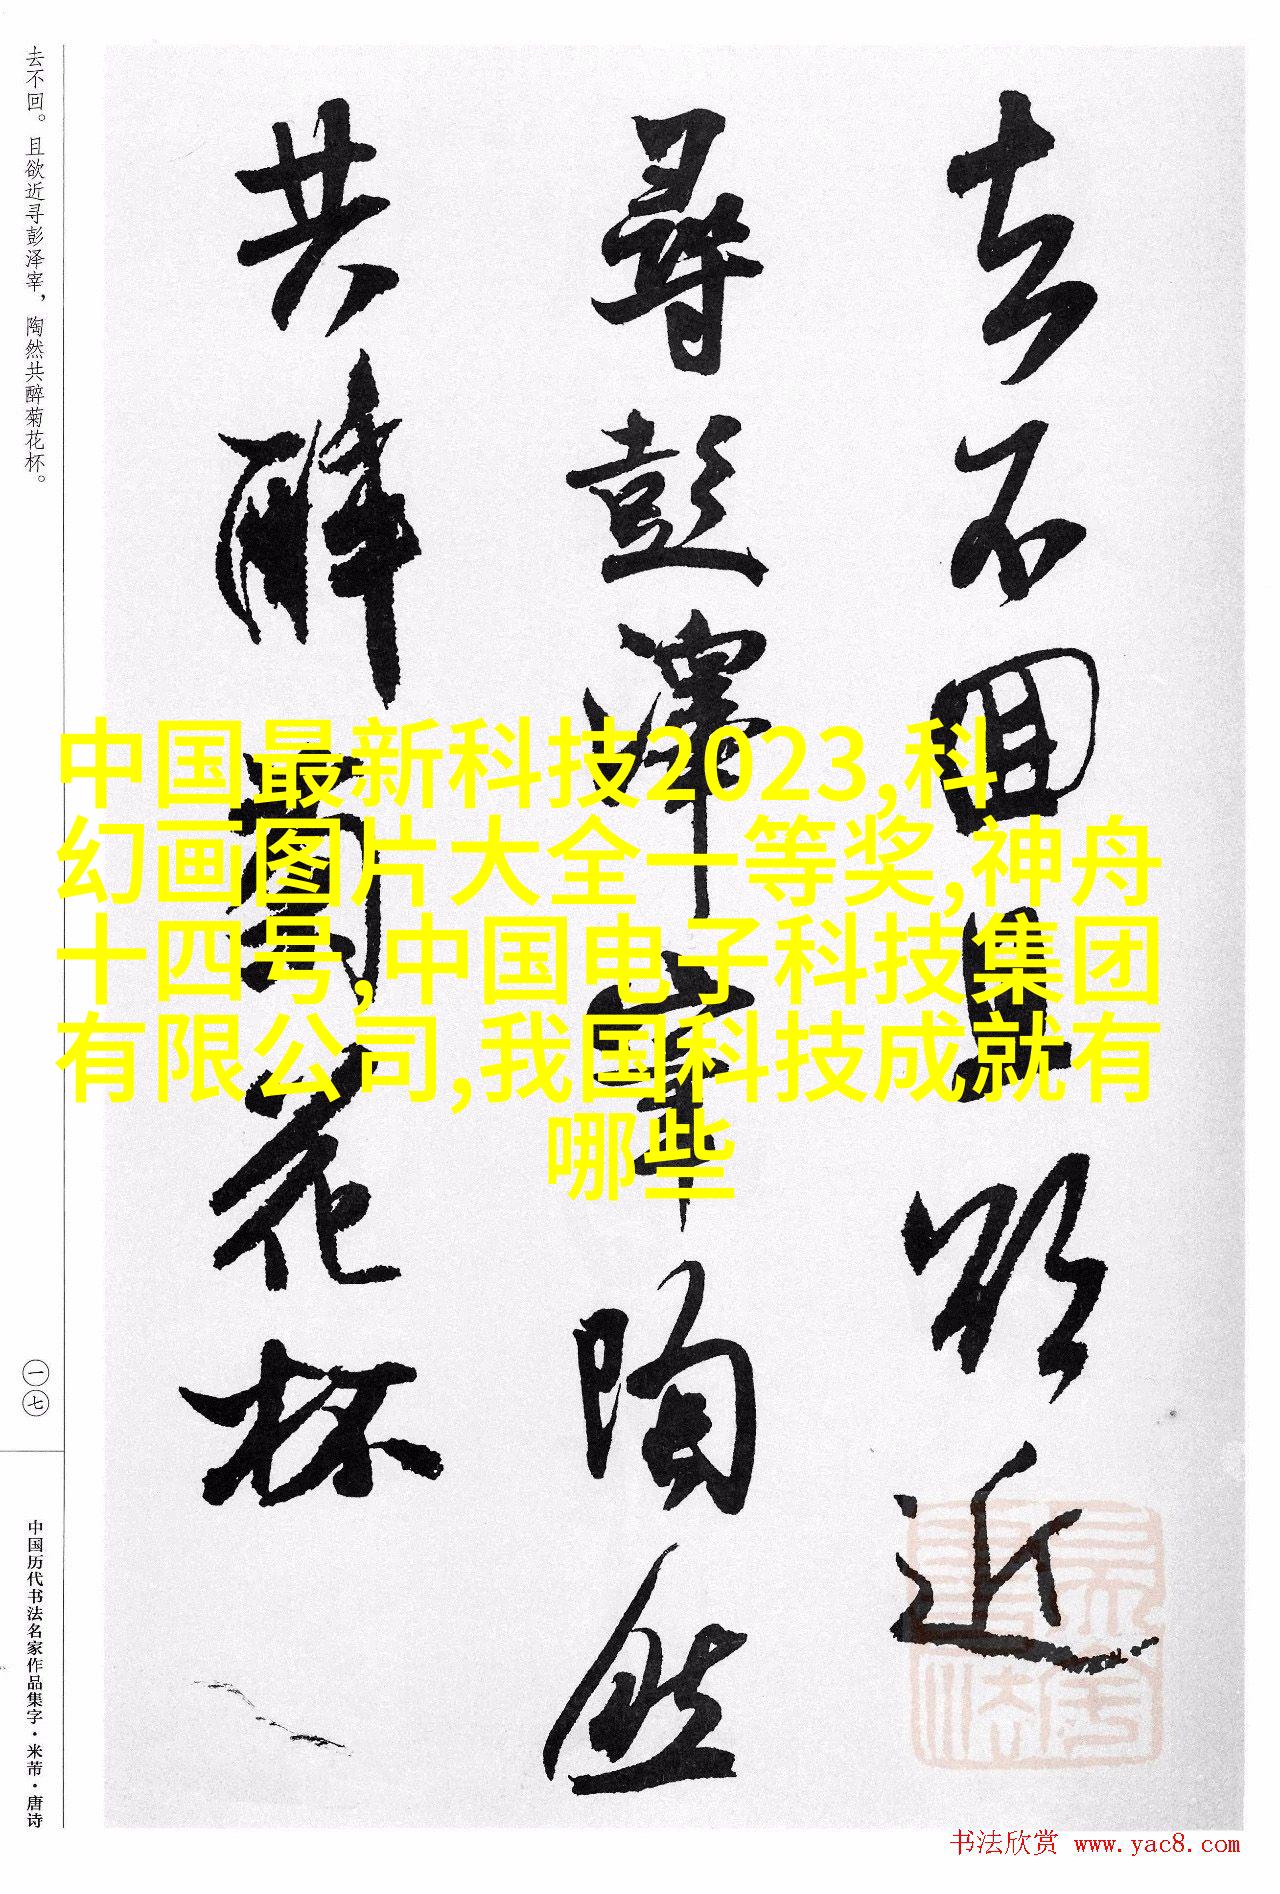 去不回且欲近
尋彭澤宰陶然
共醉菊花杯
去不回。且欲近寻彭泽宰，陶然共醉菊花杯。
一七
中国历代书法名家作品集字·米芾·唐诗
中国最新科技2023,科
幻画图片大全一等奖,神舟
十四号,中国电子科技集团
有限公司,我国科技成就有
哪些
书法欣赏 www.yac8.com